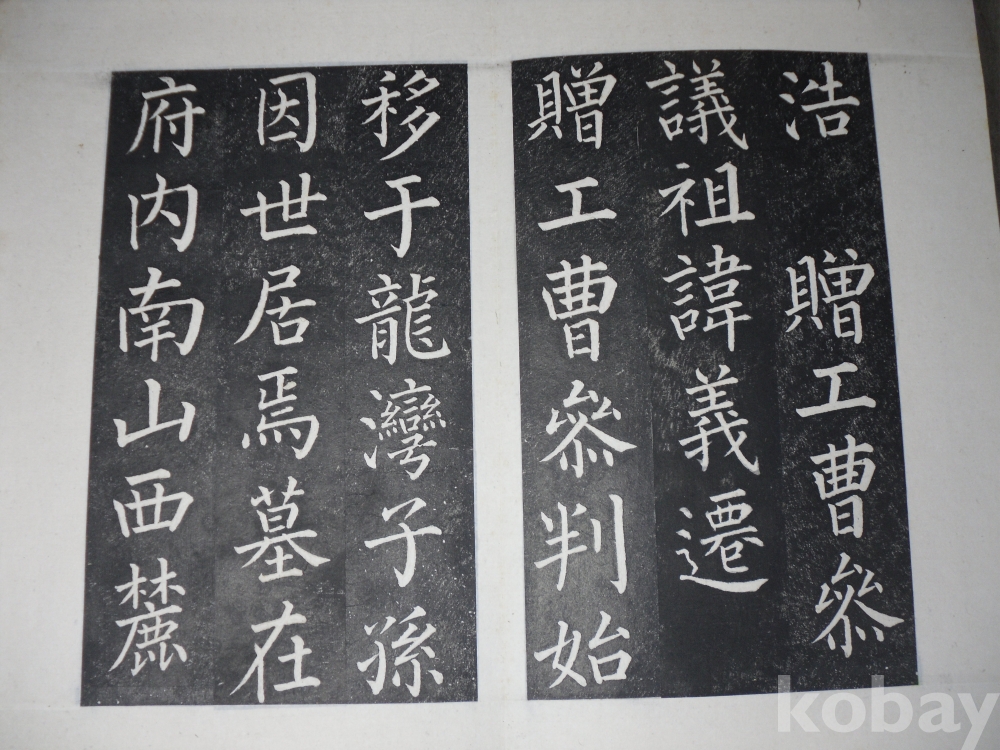 浩 贈工曹叅
議祖諱義遷
贈工曹叅判始
移于龍灣子孫
因世居焉墓在
府内南山西麓
kobay